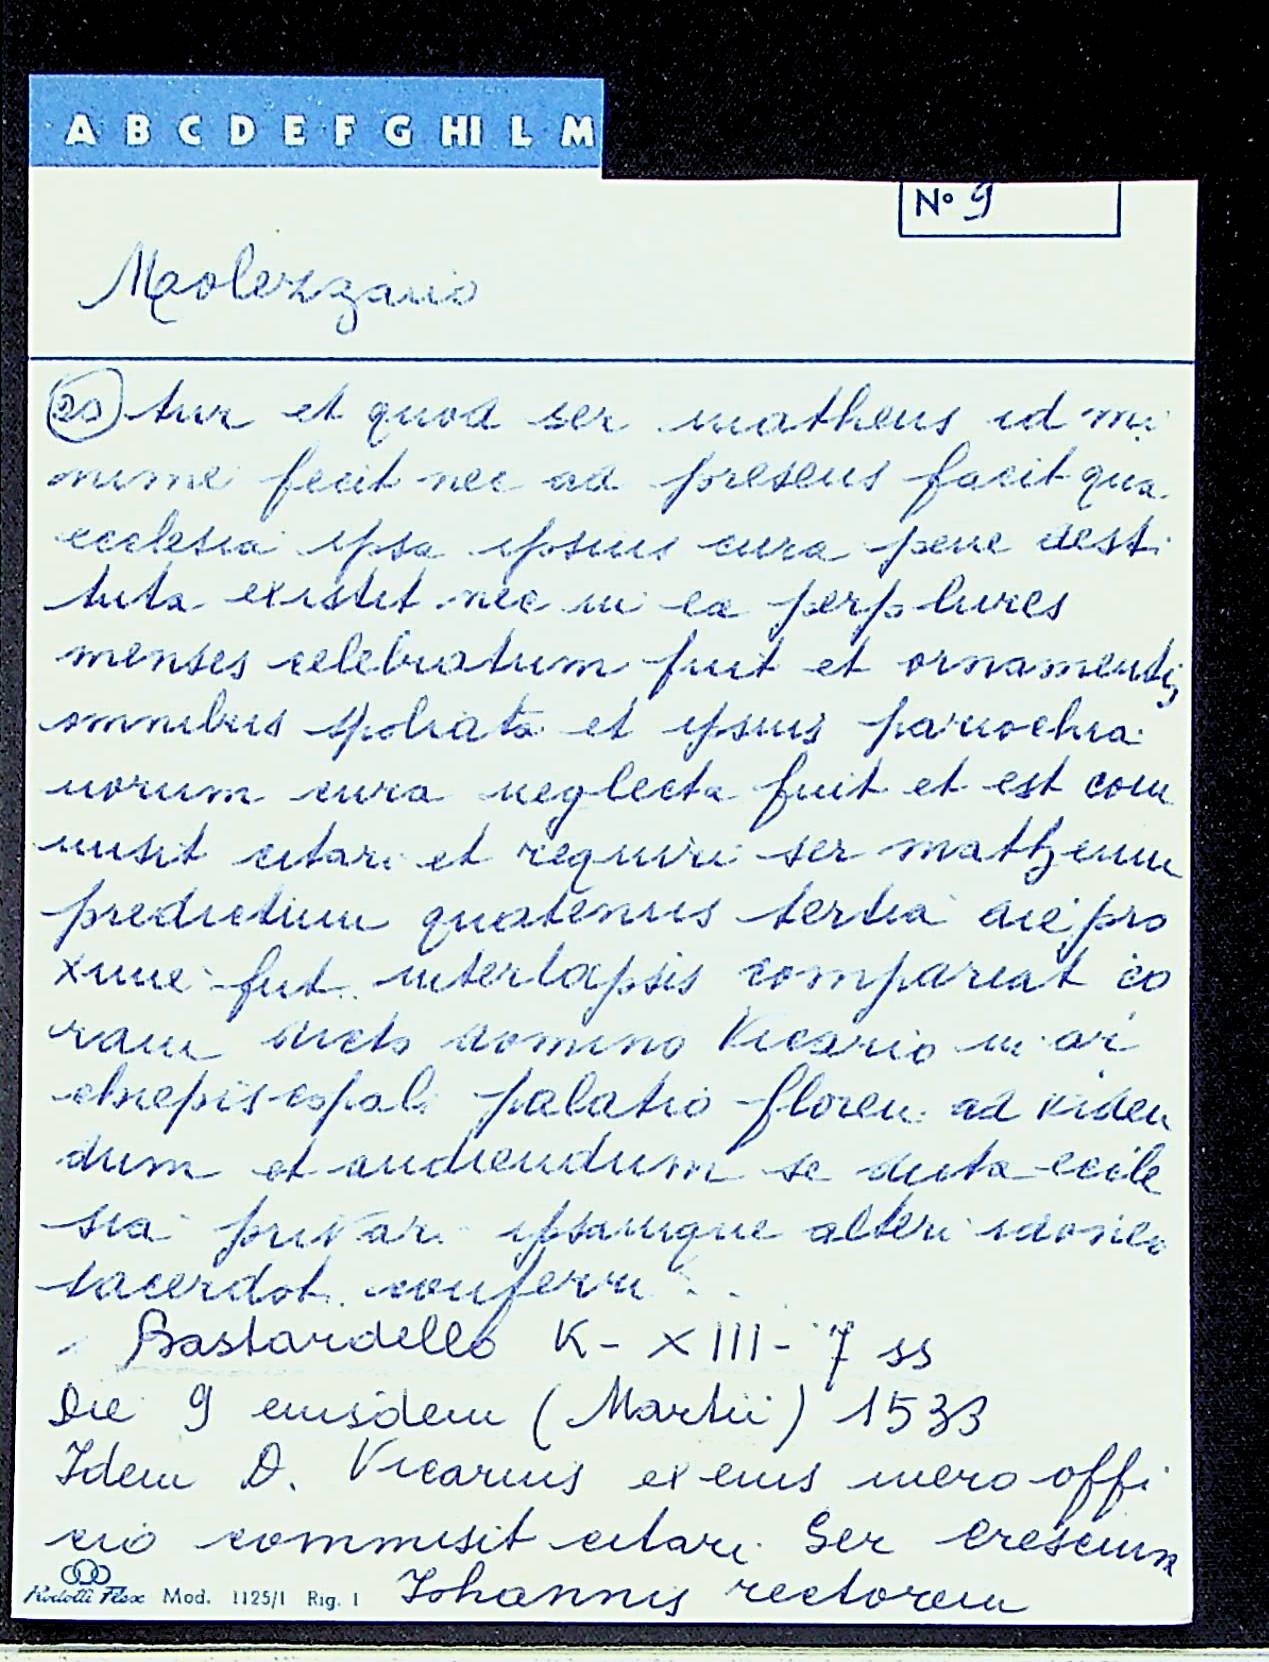 A B C D E F G HI L M
Nº 9
Maolezzano
20 tur et quod ser matheus id mi
nime fecit nec ad presens facit qua
ecclesia ipsa ipsius cura pene desti
tuta existit nec in ea perplures
menses celebratum fuit et ornamentis
omnibus spoliata et ipsius parrochia
norum cura neglecta fuit et est com
misit citari et requiri ser matheum
predictum quatenus tertia die pro
xime fut. interlapsis compareat co
ram dicto domino Vicario in ar
chiepiscopali palatio floren. ad viden
dum et audiendum se dicta eccle
sia privari ipsamque alteri idoneo
sacerdoti conferri . .
Bastardello K - XIII - 7 ss
Die 9 eiusdem (Martii) 1533
Idem D. Vicarius ex eius mero offi
cio commisit citari Ser
Johannis rectorem
Rodolli Flex Mod. 1125/1 Rig. 1